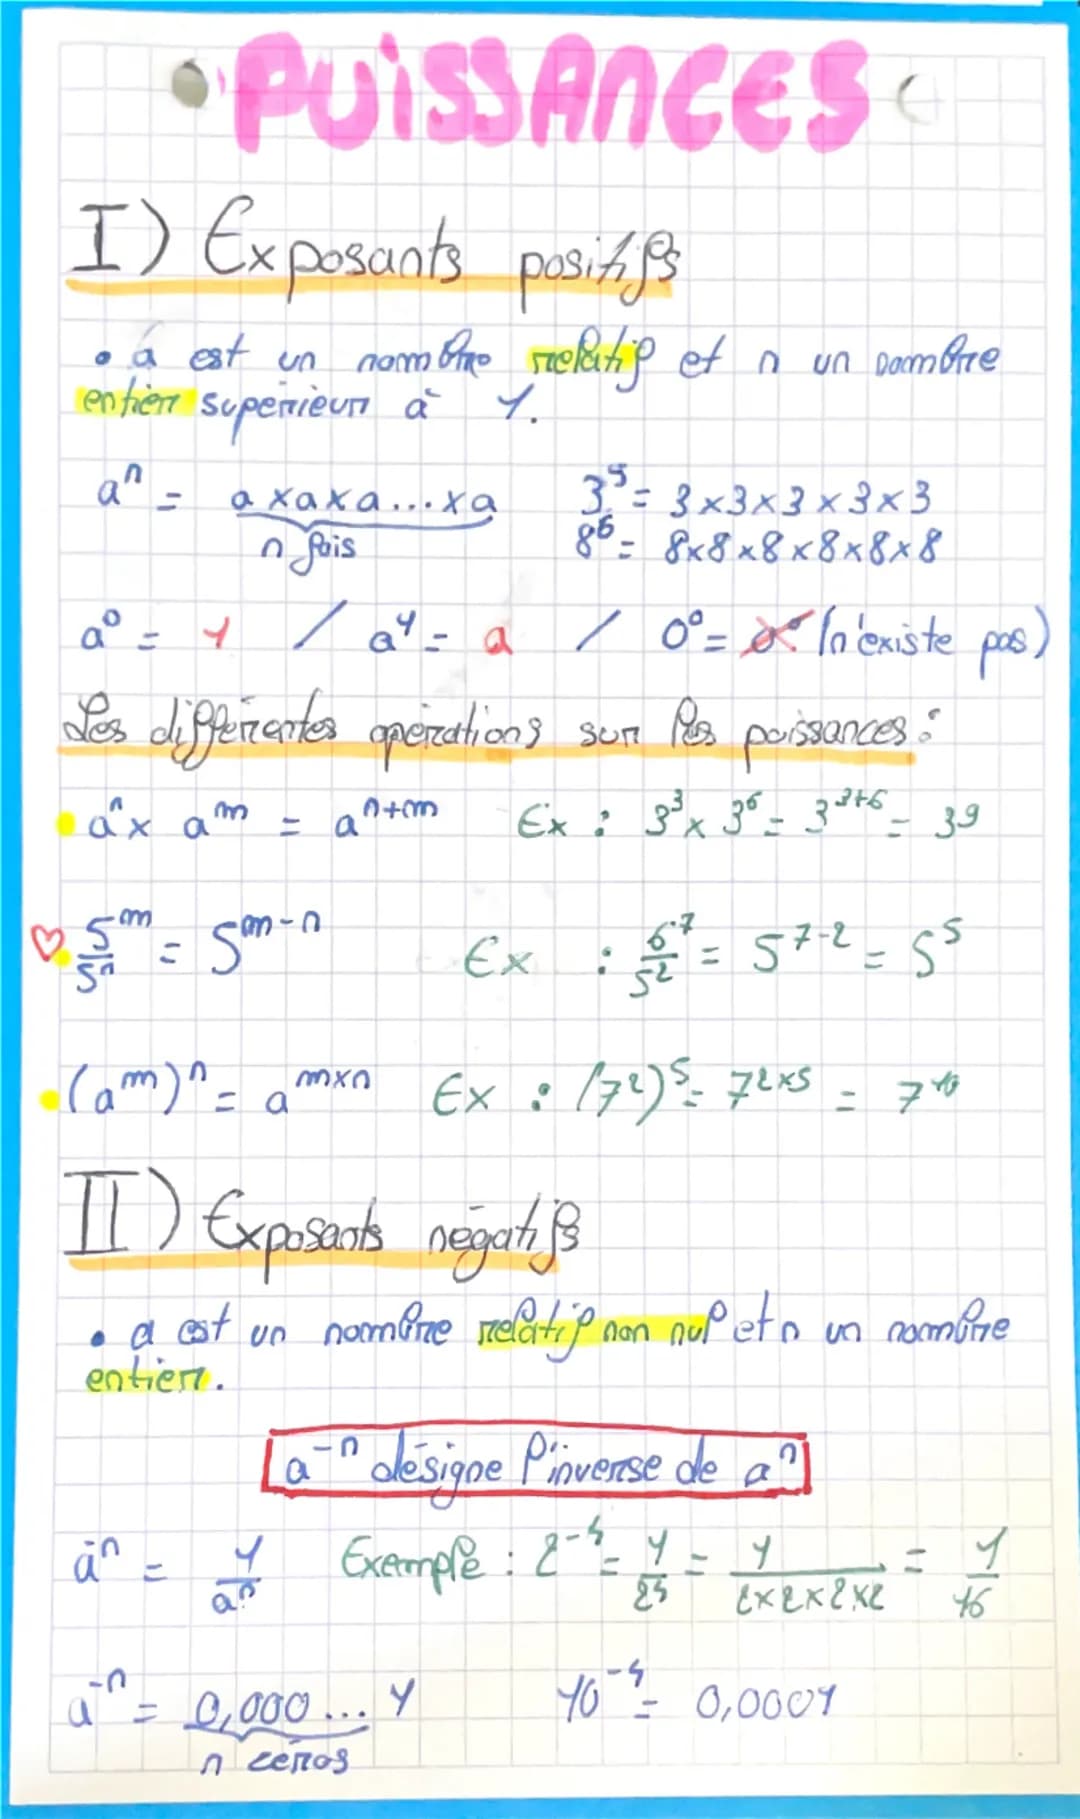 PUISSANCES
I) Exposants positifs
• a est un nombre relatif et n un nombre
entier supérieur à 1.
aⁿ = a x a x a ... x a    3⁵ = 3 x 3 x 3 x 3 x 3
n fois    8⁶ = 8 x 8 x 8 x 8 x 8 x 8
a⁰ = 1 / a¹ = a / 0⁰ = (n'existe pas)
Les différentes opérations sur les puissances :
• aⁿ x aᵐ = aⁿ⁺ᵐ    Ex : 3³ x 3⁶ = 3³⁺⁶ = 3⁹
♡ • 5ᵐ/5ⁿ = 5ᵐ⁻ⁿ    Ex : 6⁷/5² = 5⁷⁻² = 5⁵
• (aᵐ)ⁿ = aᵐˣⁿ    Ex : (7²)⁵ = 7²ˣ⁵ = 7¹⁰
II) Exposants négatifs
• a est un nombre relatif non nul et n un nombre
entier.
a⁻ⁿ désigne l'inverse de aⁿ
a⁻ⁿ = 1/aⁿ    Exemple : 2⁻⁴ = 1/2⁴ = 1/(2x2x2x2) = 1/16
a⁻ⁿ = 0,000 ... 1    10⁻⁴ = 0,0001
n zéros